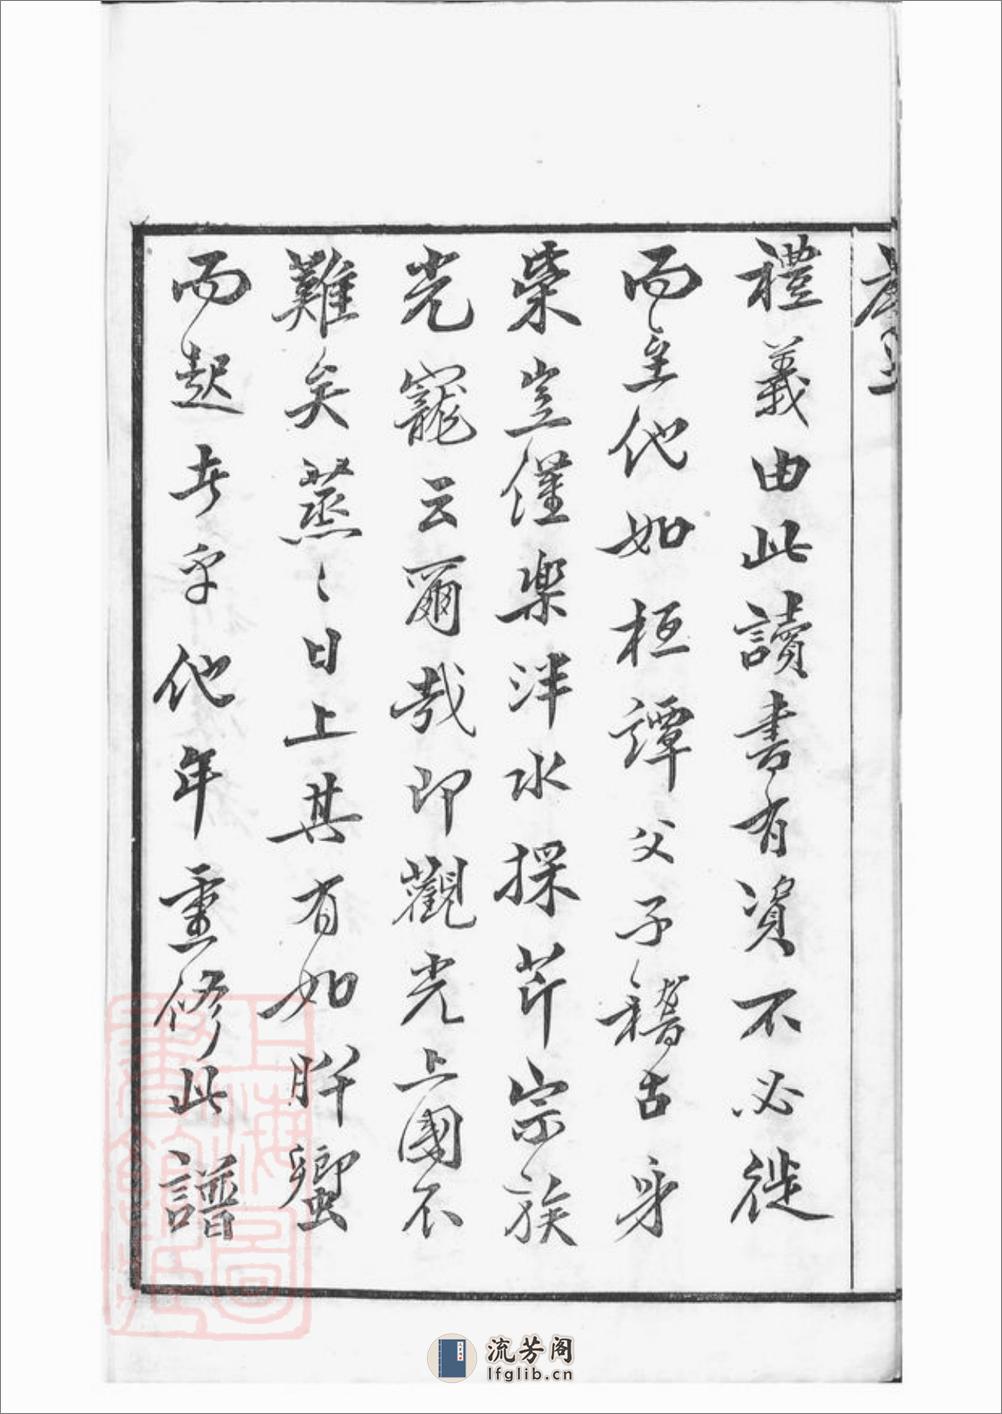 禮義由此讀書有資不必徙
而主他如桓譚父子稽古身
榮豈僅樂泮水採芹宗族
光寵云爾哉即觀光上國不
難矣蒸〻日上其有如肸蠁
而起者乎他年重修此譜
上海圖
書館藏
流芳阁
lfglib.cn